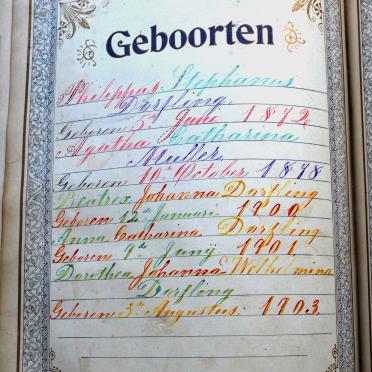 Geboorten
Philippus Stephanus
Dorfling
Geboren 5de Juni 1872
Agatha Catharina
Muller
Geboren 10de October 1878
Beatrex Johanna Dorfling
Geboren 12de Januari 1900
Anna Catharina Dorfling
Geboren 1de Junij 1901
Dorothea Johanna Wilhelmina
Dorfling
Geboren 3de Augustus 1903